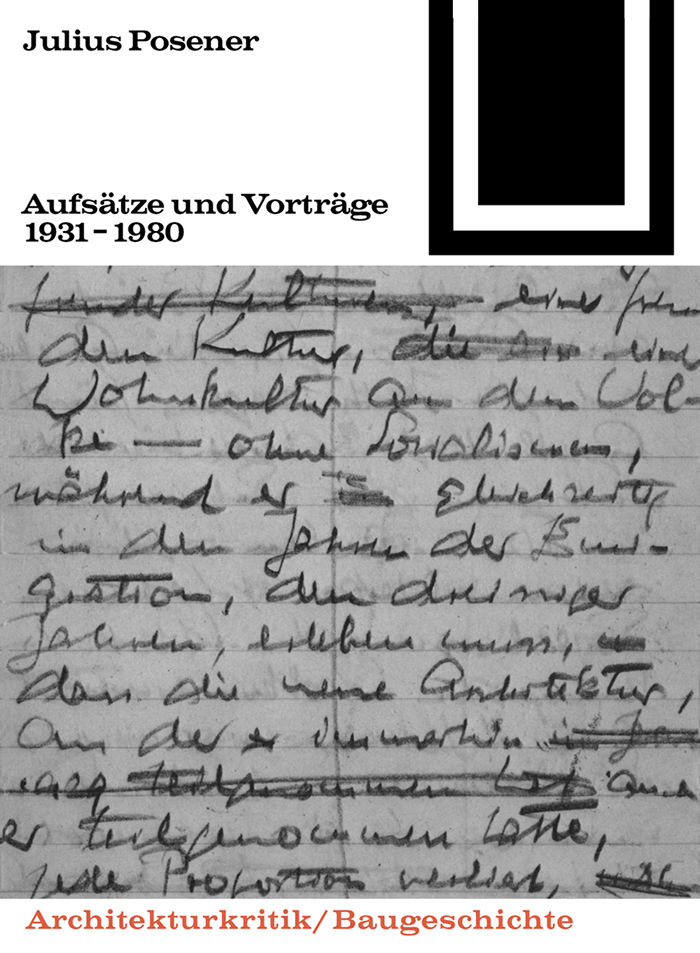 Julius Posener
Aufsätze und Vorträge
1931 – 1980
fremder Kulturen, eine frem
den Kultur, die eine
Wohnkultur aus dem Vol-
ke — ohne Sozialismus,
während er gleichzeitig
in den Jahren der Emi-
gration, den dreissiger
Jahren, erleben muss,
dass die neue Architektur,
an der er immerhin
teilgenommen hat auch
er teilgenommen hatte,
jede Proportion verliert,
Architekturkritik/Baugeschichte